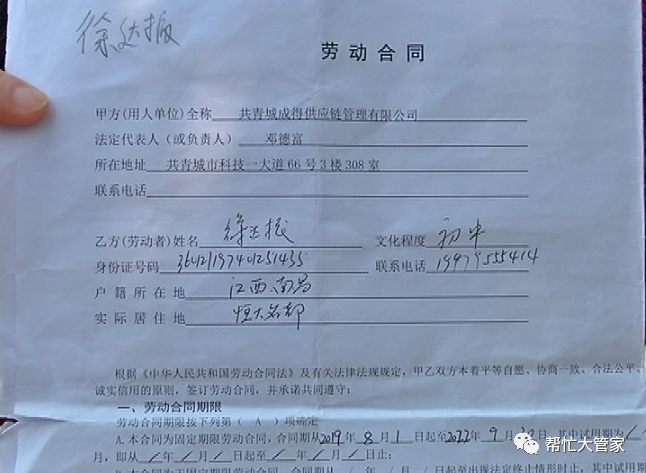 徐达振
劳动合同
甲方(用人单位)全称 共青城成得供应链管理有限公司
法定代表人(或负责人) 邓德富
所在地址 共青城市科技一大道66号3楼308室
联系电话
乙方(劳动者)姓名 徐达振 文化程度 初中
身份证号码 联系电话
户籍所在地 江西南昌
实际居住地 恒大名都
根据《中华人民共和国劳动合同法》及有关法律法规规定,甲乙双方本着平等自愿、协商一致、合法公平、
诚实信用的原则,签订劳动合同,并承诺共同遵守:
一、劳动合同期限
劳动合同期限按下列第(A)项确定
A.本合同为固定期限劳动合同,合同期从2019年8月1日起至2022年9月 日,其中试用期为/
月,即从/年/月/日起至/年/月/日止。
帮忙大管家